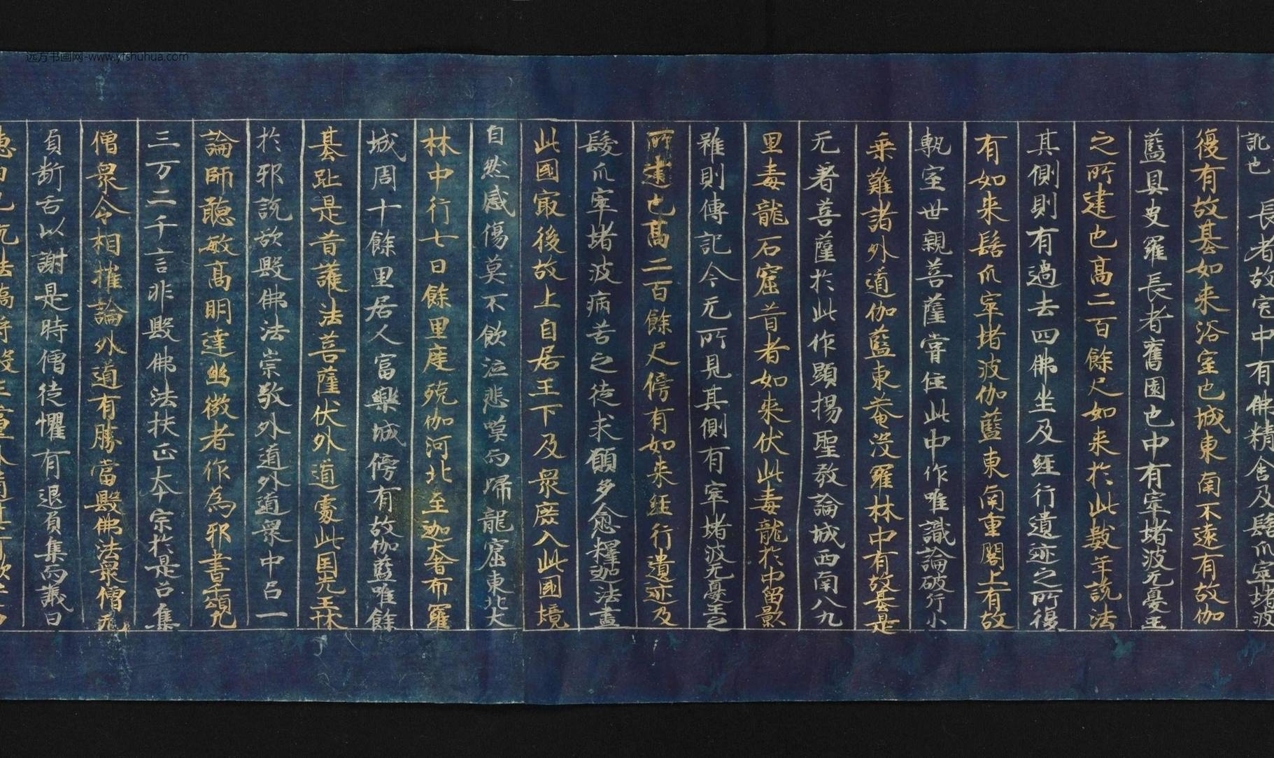 記也　長者故宅中有佛精舍及髮爪窣堵波
復有故基如来浴室也城東南不遠有故伽
藍具史羅長者舊園也中有窣堵波无憂王
之所建也高二百餘尺如来於此數年説法
其側則有過去四佛坐及經行遺迹之所復
有如来髮爪窣堵波伽藍東南重閣上有故
甎室世親菩薩甞住此中作唯識論破斥小
乗難諸外道伽藍東菴没羅林中有故基是
无著菩薩於此作顯揚聖教論城西南八九
里毒龍石窟昔者如来伏此毒龍於中留影
雖則傳記今无所見其側有窣堵波无憂王之
所建也高二百餘尺傍有如来經行遺迹及
髮爪窣堵波病苦之徒求願多愈釋迦法盡
此國寂後故上自居王下及衆庶入此國境
自然感傷莫不飲泣悲嘆而歸龍窟東北大
林中行七日餘里度殑伽河北至迦奢布羅
城周十餘里居人富樂城傍有故伽藍唯餘
基趾是昔護法菩薩伏外道處此国先王扶
於邪説欲毀佛法崇敬外道外道衆中召一
論師聰敏高明達幽微者作為邪書千頌凡
三万二千言非毀佛法扶正本宗於是召集
僧衆令相摧論外道有勝當毀佛法衆僧无
負断舌以謝是時僧徒懼有退負集而議曰